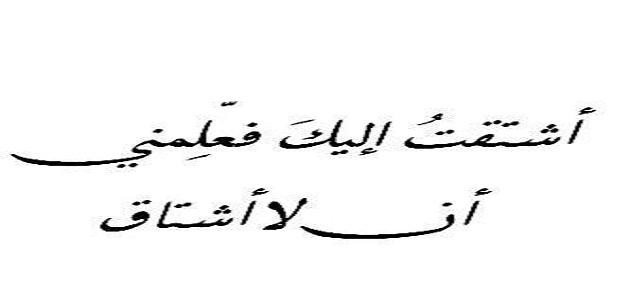 أشتقتُ إليكَ فعّلِمني
أن لا أشتاق